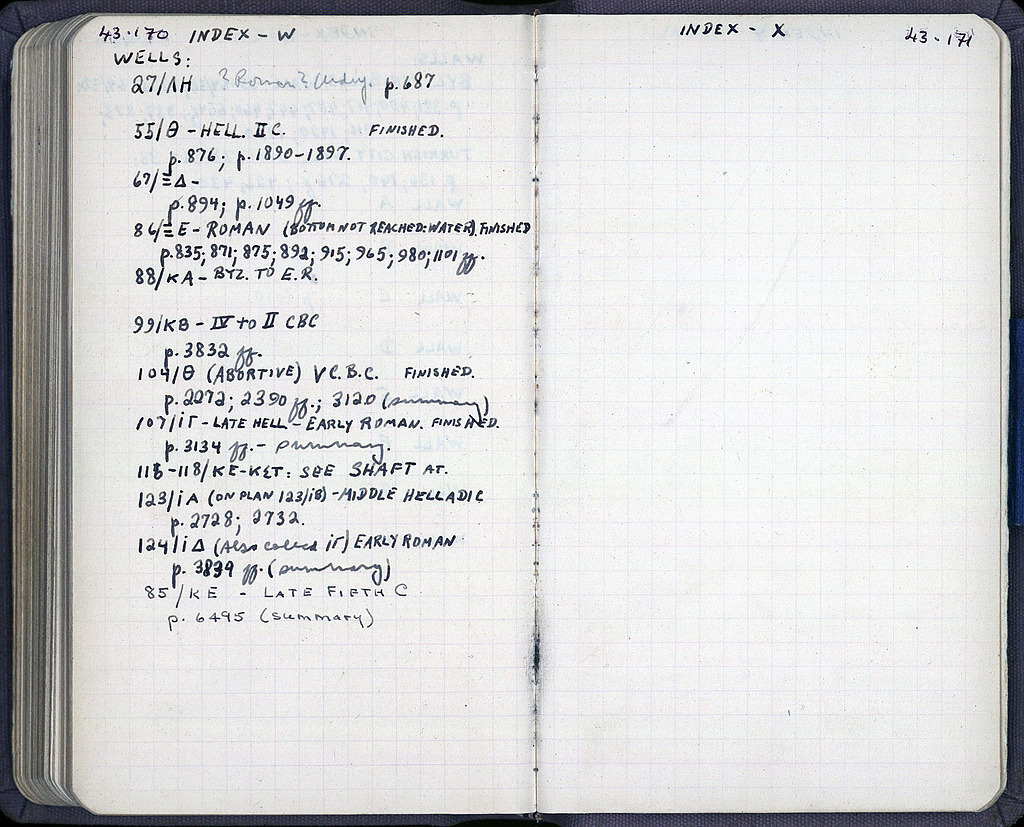 43·170 INDEX - W
WELLS:
27/ΛΗ ?Roman? p. 687
55/Θ - HELL. II C. FINISHED.
p. 876; p. 1890-1897.
67/ΞΔ -
p. 894; p. 1049 ff.
86/ΞE - ROMAN (BOTTOM NOT REACHED: WATER) FINISHED
p. 835; 871; 875; 892; 915; 965; 980; 1101 ff.
88/KA - BYZ. TO E.R.
99/KB - IV to II CBC
p. 3832 ff.
104/Θ (ABORTIVE) V C. B.C. FINISHED.
p. 2272; 2390 ff.; 3120 (summary)
107/iΓ - LATE HELL - EARLY ROMAN. FINISHED.
p. 3134 ff. - summary.
116-118/KE-KΣT: SEE SHAFT AT.
123/iA (ON PLAN 123/iB) - MIDDLE HELLADIC
p. 2728; 2732.
124/iΔ (Also called iΓ) EARLY ROMAN
p. 3839 ff. (summary)
85/KE - LATE FIFTH C
p. 6495 (summary)
INDEX - X 43·171